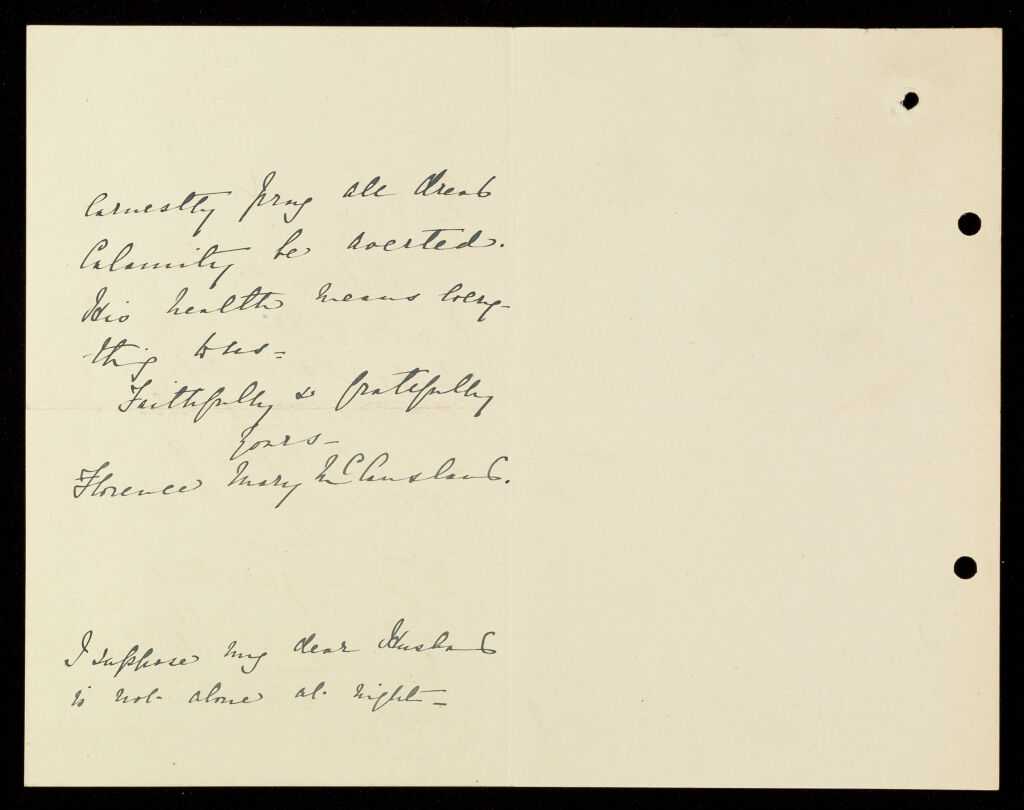 earnestly pray all dread
Calamity be averted.
His health means every-
thig to us =
Faithfully & gratefully
yours -
Florence Mary McCausland.
I suppose my dear Husband
is not alone at night -